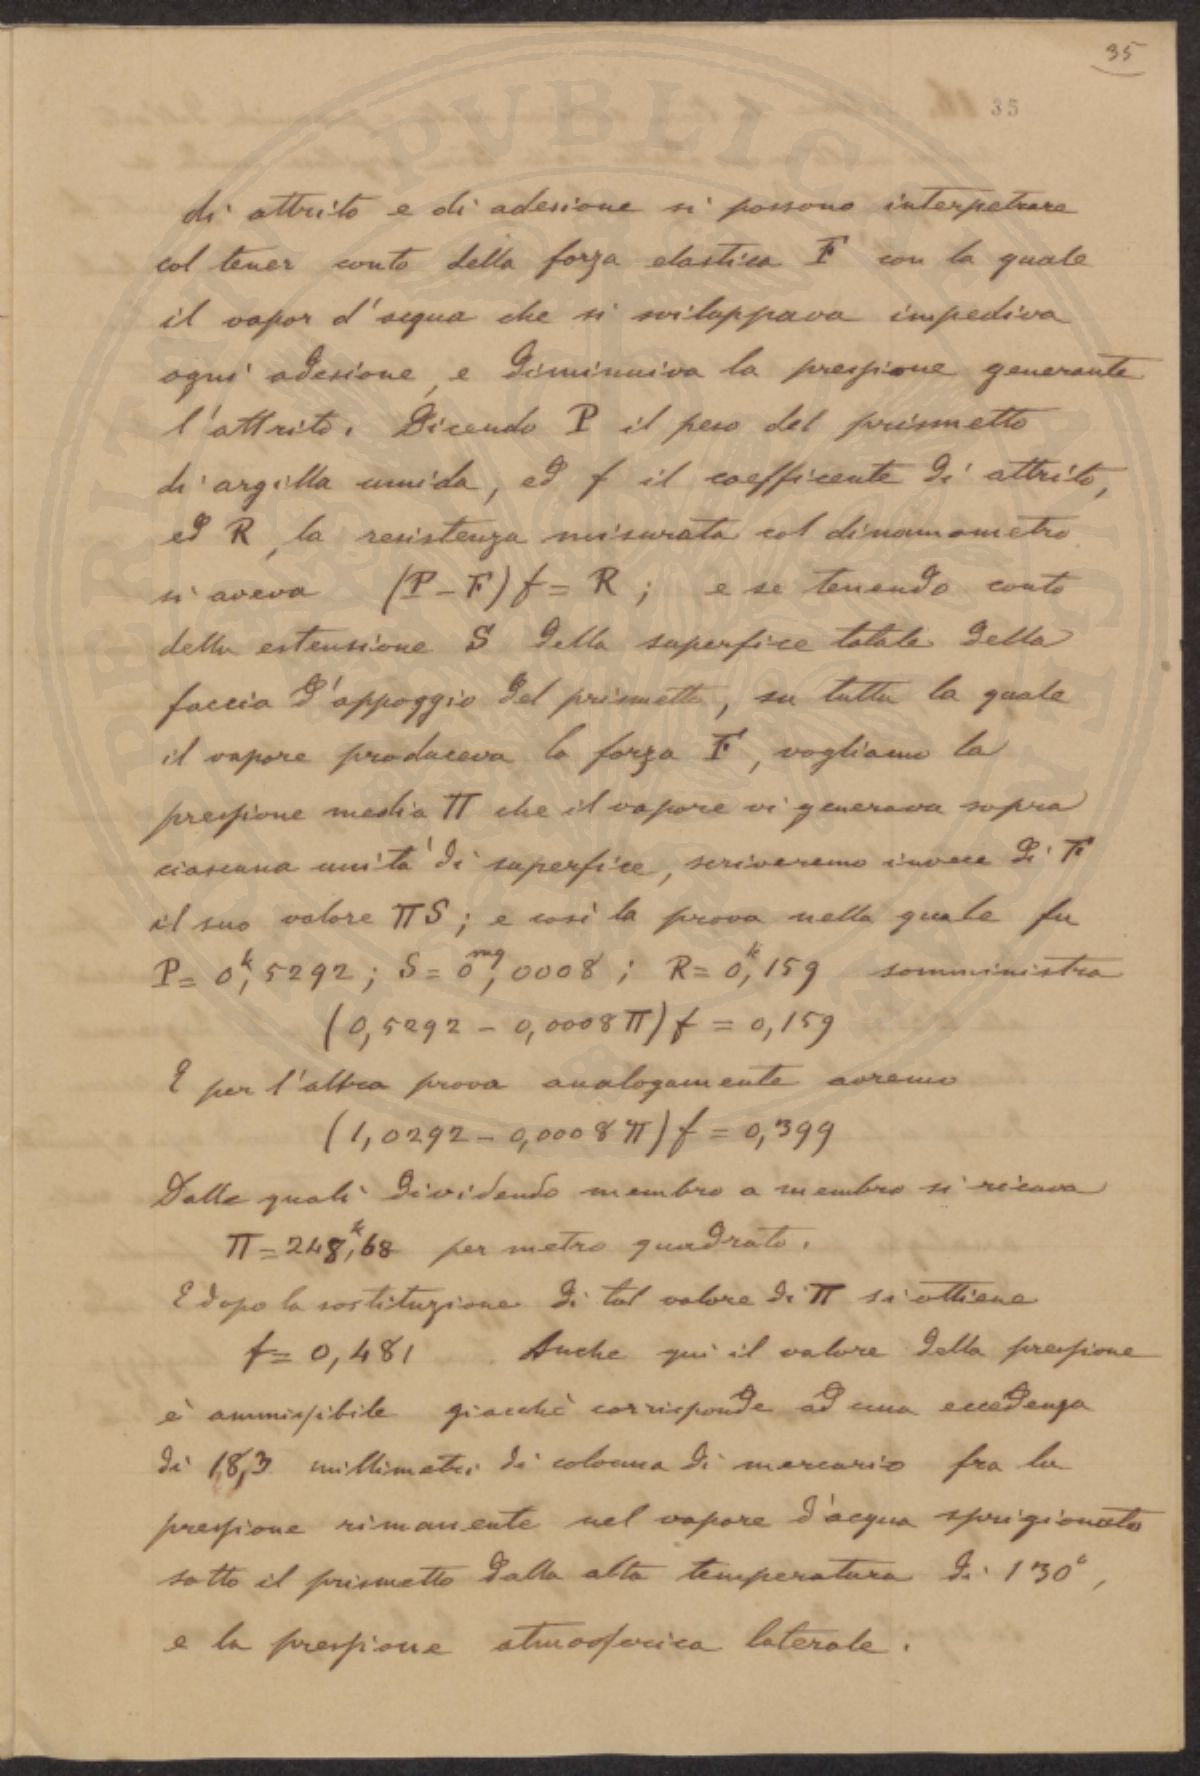 35
35
di attrito e di adesione si possono interpetrare
col tener conto della forza elastica F con la quale
il vapor d'acqua che si sviluppava impediva
ogni adesione, e diminuiva la pressione generante
l'attrito. Dicendo P il peso del prismetto
di argilla umida, ed f il coefficente di attrito,
ed R, la resistenza misurata col dinamometro
si aveva (P-F)f = R ; e se tenendo conto
della estensione S della superfice totale della
faccia d'appoggio del prismetto, su tutta la quale
il vapore produceva la forza F, vogliamo la
pressione media π che il vapore vi generava sopra
ciascuna unità di superfice, scriveremo invece di F
il suo valore πS ; e così la prova nella quale fu
P = 0,ᵏ5292 ; S = 0,ᵐq0008 ; R = 0,ᵏ159 somministra
(0,5292 - 0,0008π)f = 0,159
E per l'altra prova analogamente avremo
(1,0292 - 0,0008π)f = 0,399
Dalle quali dividendo membro a membro si ricava
π = 248,ᵏ68 per metro quadrato.
E dopo la sostituzione di tal valore di π si ottiene
f = 0,481 Anche qui il valore della pressione
è ammissibile giacchè corrisponde ad una eccedenza
di 18,3 millimetri di colonna di mercurio fra la
pressione rimanente nel vapore d'acqua sprigionato
sotto il prismetto dalla alta temperatura di 130°,
e la pressione atmosferica laterale.
PVBLIC